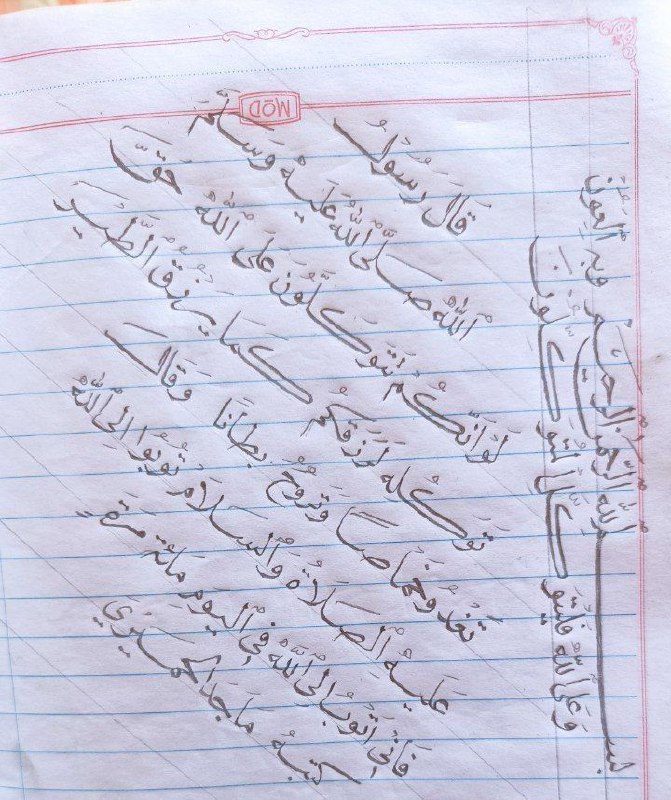 بسم الله الرحمن الرحيم وبه العون
وعلى الله فليتوكل المتوكلون
قَالَ رَسُولُ
اللهِ صلى الله عليه وسلم
لو أنكم تتوكلون على الله حق
توكله لرزقكم كما يرزق الطير
تغدو خماصاً وتروح بطانا وقال
عليه الصلاة والسلام توبوا إلى الله
فإني أتوب إلى الله في اليوم مائة مرة
كتبه ماجد الحميري
MOD